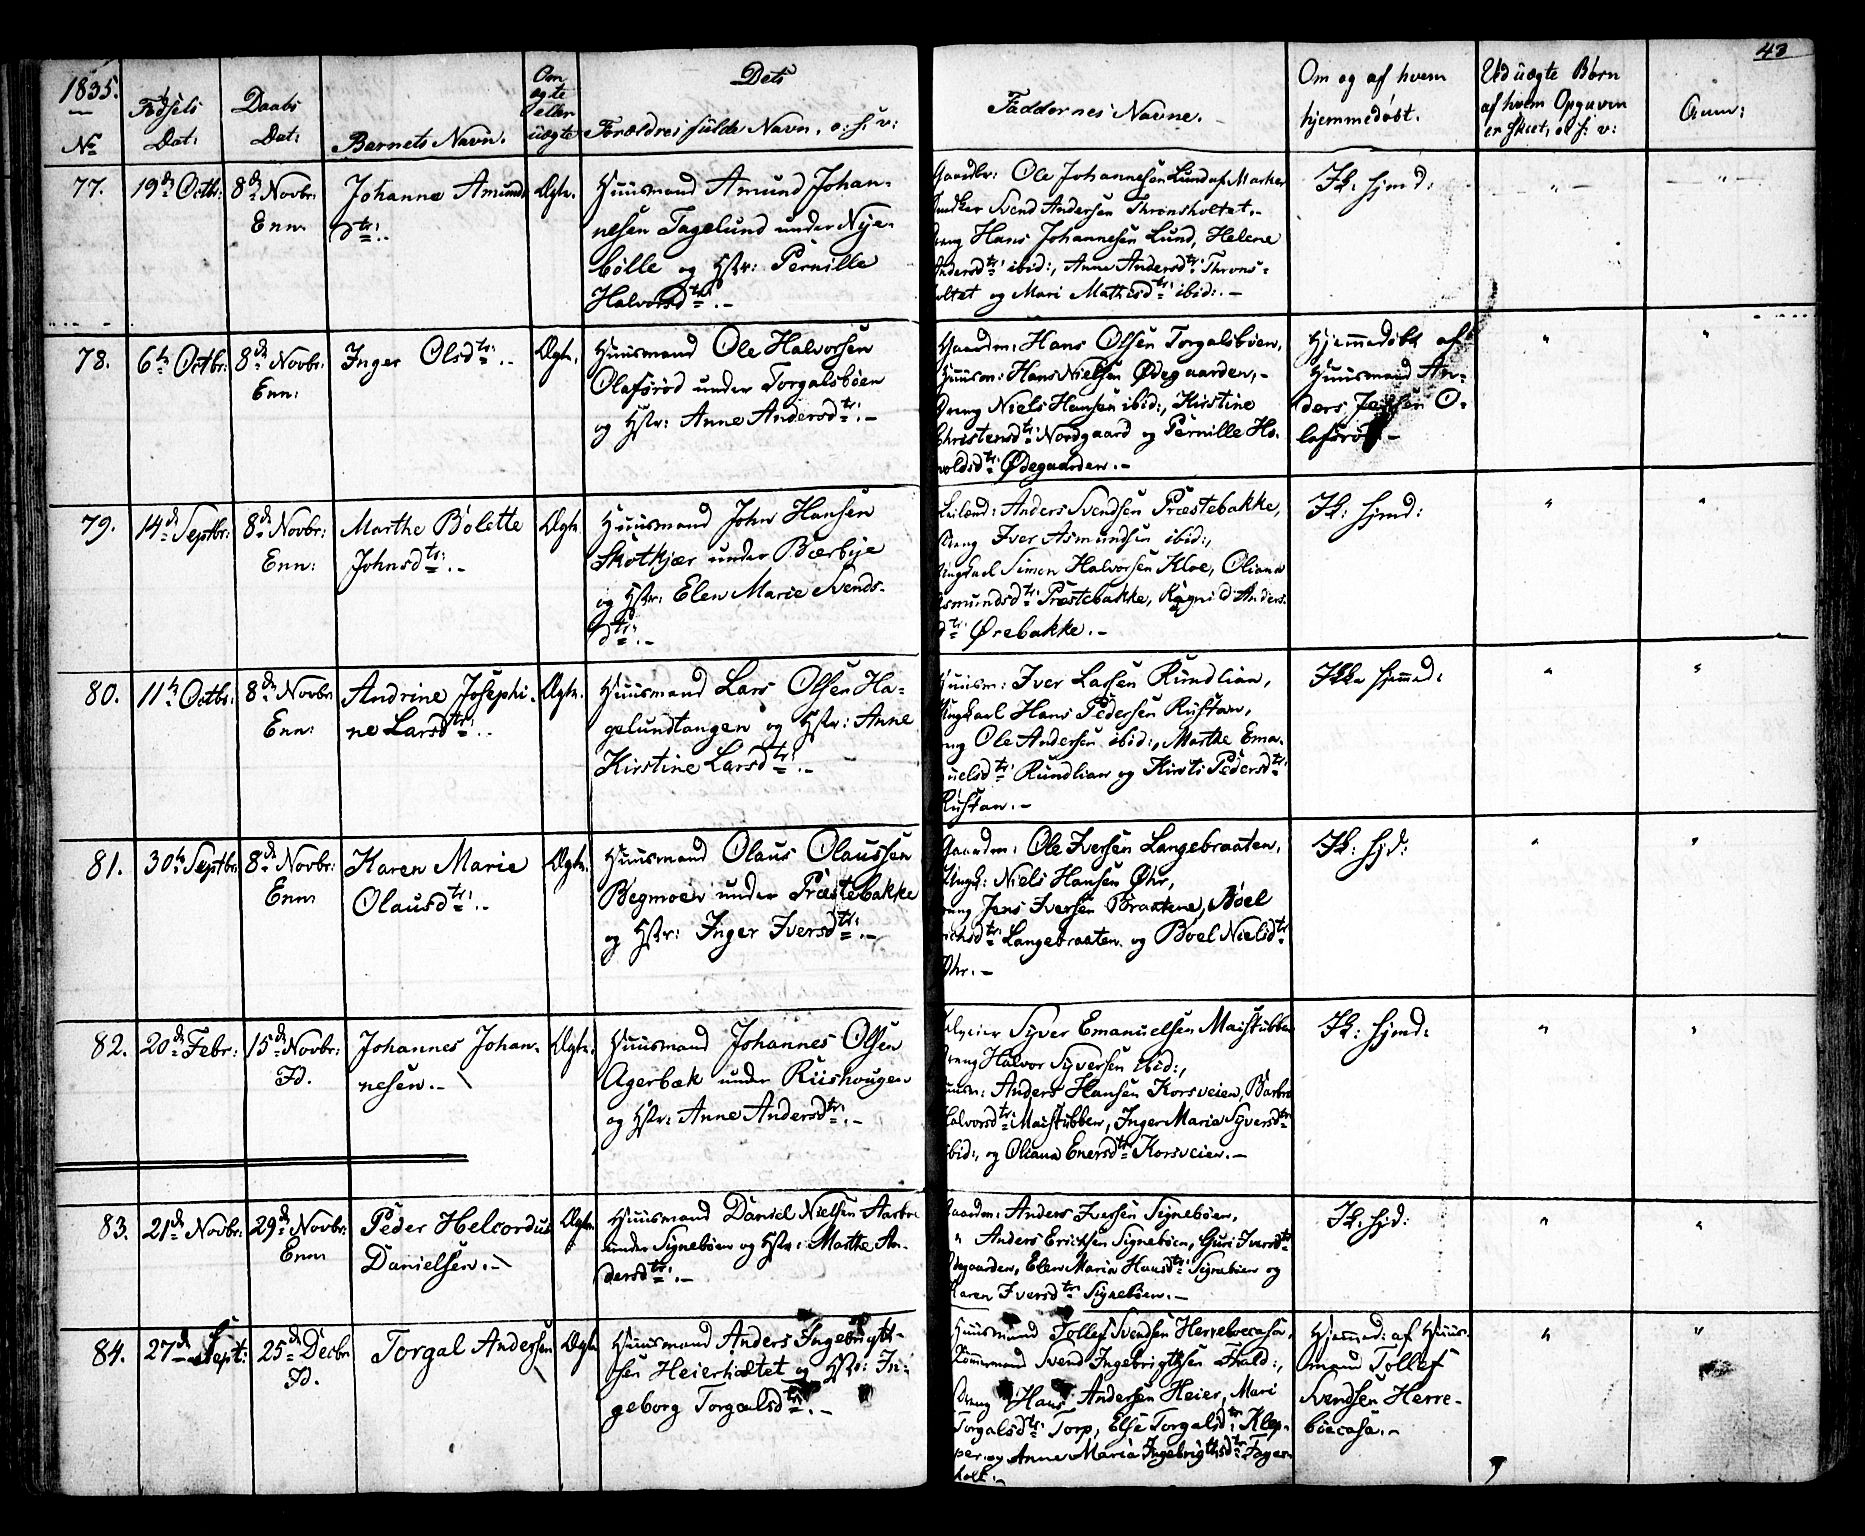 43
1835.
№
Fødsels
Dat:
Daabs
Dat:
Barnets Navn.
Om
ægte
eller
uægte
Dets
Forældres fulde Navn. o: s: v:
Faddernes Navne.
Om og af hvem
hjemmedøbt.
Ved uægte Børn
af hvem Opgaven
er skeet, o: s: v:
Anm:
77.
19de Octbr:
8de Novbr:
Enn:
Johanne Amunds
dtr:.
Ægte.
Huusmand Amund Johan-
nesen Tagelund under Nye-
bölle og Hstr: Pernille
Halvorsdtr:.-
Gaardbr: Ole Johannesen Lund af Marker
Svend Andersen Thronsholtet.-
Hans Johannesen Lund, Helene
Andersdtr: ibid:, Anne Andersdtr: Throns-
holtet og Mari Mathisdtr: ibid:.-
Ik: hjmd:
"
"
78.
6te Octbr:
8de Novbr:
Enn:
Inger Olsdtr:.-
Ægte.
Huusmand Ole Halvorsen
Olafsröd under Torgalsböen
og Hstr: Anne Andersdtr:.-
Gaardm: Hans Olsen Torgalsböen,
Huusm: Hans Nielsen Ødegaarden,-
Dreng Niels Hansen ibid:, Kirstine
Christensdtr: Nordgaard og Pernille Ha-
voldsdtr: Ødegaarden.-
Hjemmedöbt af
Huusmand An-
ders Jensen O-
lafsröd.-
"
"
79.
14de Septbr:
8de Novbr:
Enn:
Marthe Bolette
Johnsdtr:.-
Ægte.
Huusmand John Hansen
Skotkjær under Bærbye
og Hstr: Elen Marie Svends-
dtr:.-
Anders Svendsen Præstebakke,
Dreng Iver Asmundsen ibid:,
Ungkarl Simen Halvorsen Kloe, Oliana
Asmundsdtr: Præstebakke, Ragnild Anders-
dtr: Ørebakke.-
Ik: hjmd:
"
"
80.
11te Octbr:
8de Novbr:
Enn:
Andrine Josephi-
ne Larsdtr:.
Ægte.
Huusmand Lars Olsen Ha-
gelundtangen og Hstr: Anne
Kirstine Larsdtr:.-
Huusm: Iver Larsen Rundlian,
Ungkarl Hans Pedersen Rustan,
Dreng Ole Andersen ibid:, Marthe Ema-
nuelsdtr: Rundlian og Kirsti Pedersdtr:
Rustan.-
Ikke hjemmed:
"
"
81.
30te Septbr:
8de Novbr:
Enn:
Karen Marie
Olausdtr:.
Ægte.
Huusmand Olaus Olaussen
Begmoen under Præstebakke
og Hstr: Inger Iversdtr:.-
Gaardm: Ole Iversen Langebraaten,
Ungk: Niels Hansen Øhr,
Dreng Jens Iversen Braatene, Boel
Erichsdtr: Langebraaten og Boel Nielsdtr:
Øhr.-
Ik: hjd:
"
"
82.
20de Febr:
15de Novbr:
Id.
Johannes Johan-
nesen.-
Ægte.
Huusmand Johannes Olsen
Agerbæk under Riishougen
og Hstr: Anne Andersdtr:.-
Selveier Syver Emanuelsen Maistubben
Dreng Halvor Syversen ibid:,
Huusm: Anders Hansen Korsveien, Barbro
Halvorsdtr: Maistubben, Inger Maria Syversdtr:
ibid:, og Oliana Enersdtr: Korsveien.-
Ik: hjmd:
"
"
83.
21de Novbr:
29de Novbr:
Enn:
Peder Helcordus
Danielsen.-
Ægte.
Huusmand Daniel Nielsen Aarbo
under Signeböen og Hstr: Marthe An-
dersdtr:.-
Gaardm: Anders Iversen Signeböen,
" Anders Erichsen Signeböen, Guri Iversdtr:
Ødegaarden, Elen Maria Hansdtr: Signeböen og
Karen Iversdtr: Signeböen.-
Ik: hjd:
"
"
84.
27de Sept:
25de Decbr:
Id.
Torgal Andersen
Ægte.
Huusmand Anders Ingebrigt-
sen Heierhæltet og Hstr: In-
geborg Torgalsdtr:.-
Huusmand Tollef Svendsen Herreboecasa,
Svend Ingebrigtsen Fiald:,
Dreng Hans Andersen Heier, Mari
Torgalsdtr: Torp, Else Torgalsdtr: Klep-
per og Anne Maria Ingebrigtsdtr: Fager-
holt.-
Hjemmed: af Huus-
mand Tollef
Svendsen Herre-
böecasa.-
"
"